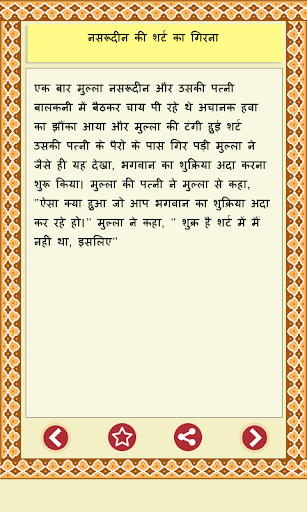 नसरूदीन की शर्ट का गिरना
एक बार मुल्ला नसरूदीन और उसकी पत्नी
बालकनी में बैठकर चाय पी रहे थे अचानक हवा
का झौंका आया और मुल्ला की टंगी हुई शर्ट
उसकी पत्नी के पैरों के पास गिर पड़ी मुल्ला ने
जैसे ही यह देखा, भगवान का शुक्रिया अदा करना
शुरू किया। मुल्ला की पत्नी ने मुल्ला से कहा,
”ऐसा क्या हुआ जो आप भगवान का शुक्रिया अदा
कर रहे हो।” मुल्ला ने कहा, ” शुक्र है शर्ट में मैं
नहीं था, इसलिए”